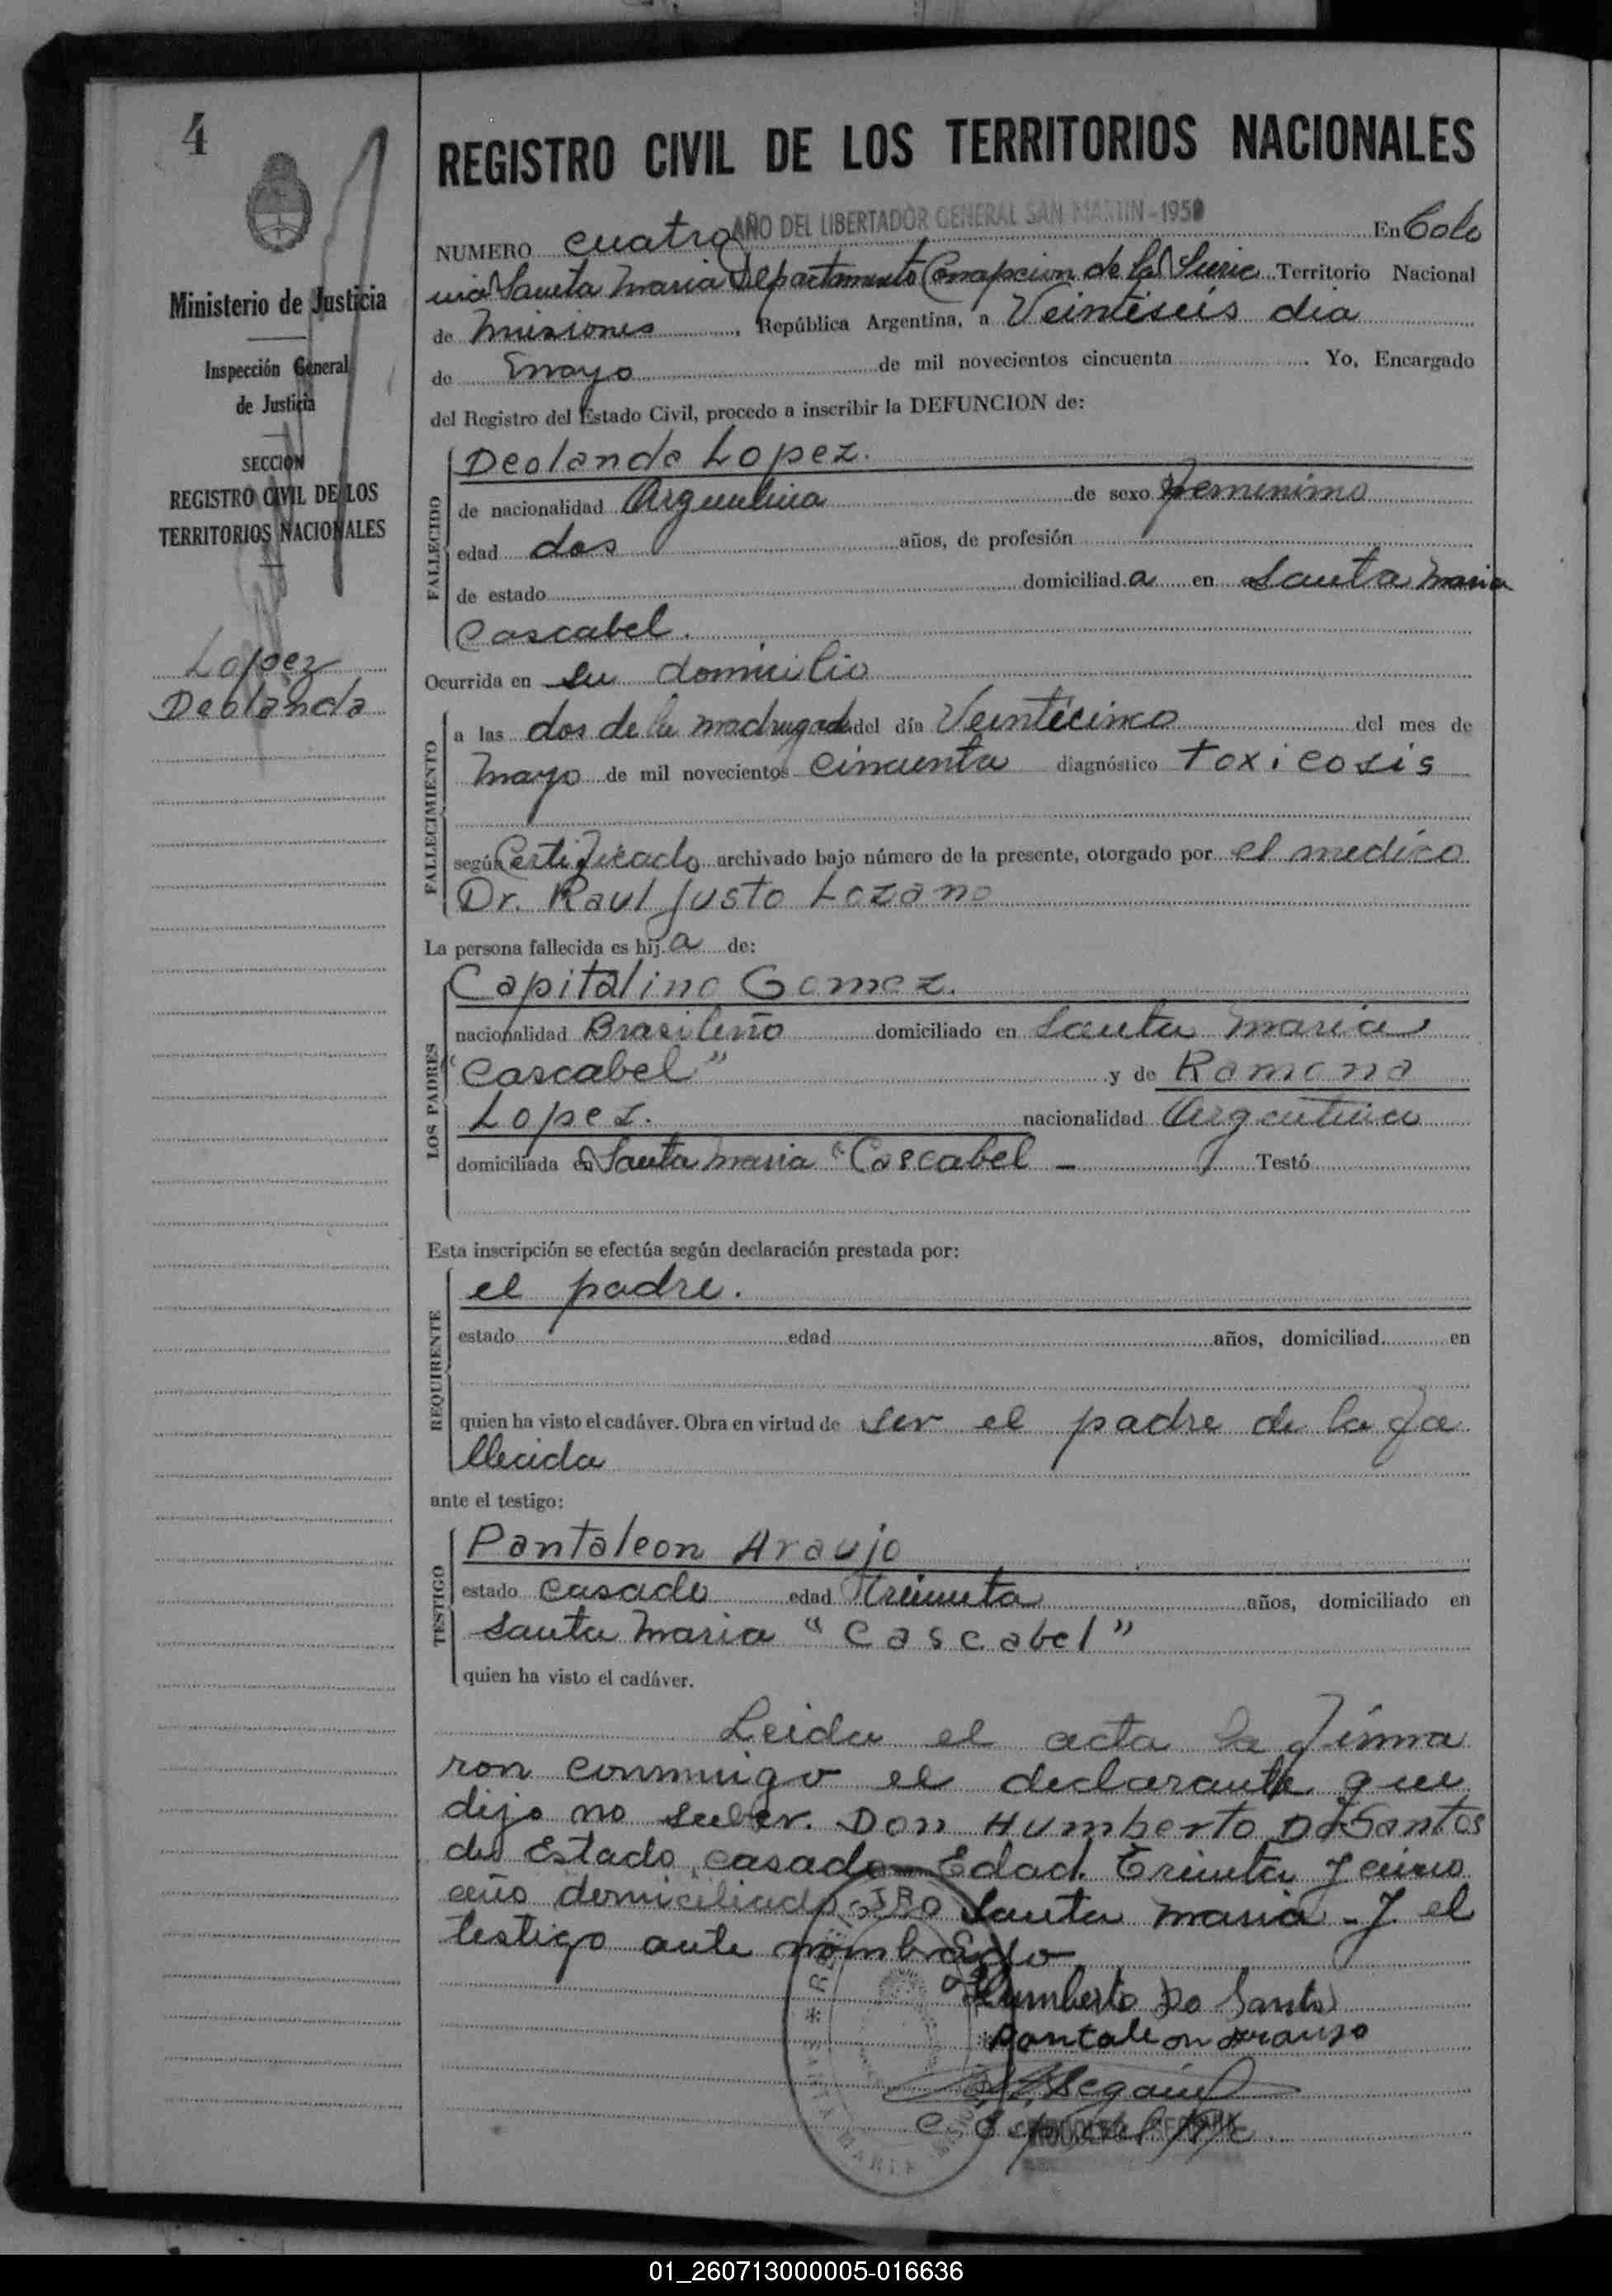 4
REGISTRO CIVIL DE LOS TERRITORIOS NACIONALES
AÑO DEL LIBERTADOR GENERAL SAN MARTIN - 1950
NUMERO cuatro En Colo
nia Santa Maria Departamento Concepcion de la Sierra Territorio Nacional
de Misiones, República Argentina, a Veintiseis dia
de Mayo de mil novecientos cincuenta Yo, Encargado
del Registro del Estado Civil, procedo a inscribir la DEFUNCION de:
Ministerio de Justicia
Inspección General
de Justicia
SECCION
REGISTRO CIVIL DE LOS
TERRITORIOS NACIONALES
Lopez
Deolanda
FALLECIDO
Deolanda Lopez.
de nacionalidad Argentina de sexo femenimo
edad dos años, de profesión
de estado domiciliad a en Santa Maria
Cascabel.
Ocurrida en su domicilio
FALLECIMIENTO
a las dos de la madrugada del día Veinticinco del mes de
Mayo de mil novecientos Cincuenta diagnóstico toxicosis
según Certificado archivado bajo número de la presente, otorgado por el medico
Dr. Raul Justo Lozano
La persona fallecida es hij a de:
LOS PADRES
Capitalino Gomez.
nacionalidad Brasileño domiciliado en Santa Maria
"Cascabel" y de Ramona
Lopez. nacionalidad Argentina
domiciliada en Santa Maria "Cascabel - Testó
Esta inscripción se efectúa según declaración prestada por:
REQUIRENTE
el padre.
estado edad años, domiciliad en
quien ha visto el cadáver. Obra en virtud de ser el padre de la fa
llecida
ante el testigo:
TESTIGO
Pantaleon Araujo
estado Casado edad Treinta años, domiciliado en
Santa Maria "Cascabel"
quien ha visto el cadáver.
Leida el acta la firma
ron conmigo el declarante que
dijo no saber. Don Humberto Do Santos
de Estado casado Edad. Treinta y cinco
año domiciliado Santa Maria - y el
testigo ante nombrado
Humberto Do Santo
Pantaleon Araujo
01_260713000005-016636